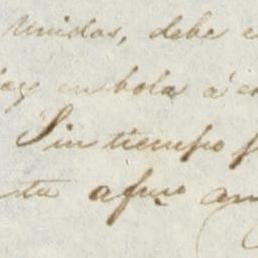 Unidos, debe
en bola á
Sin tiempo
tu afmo am